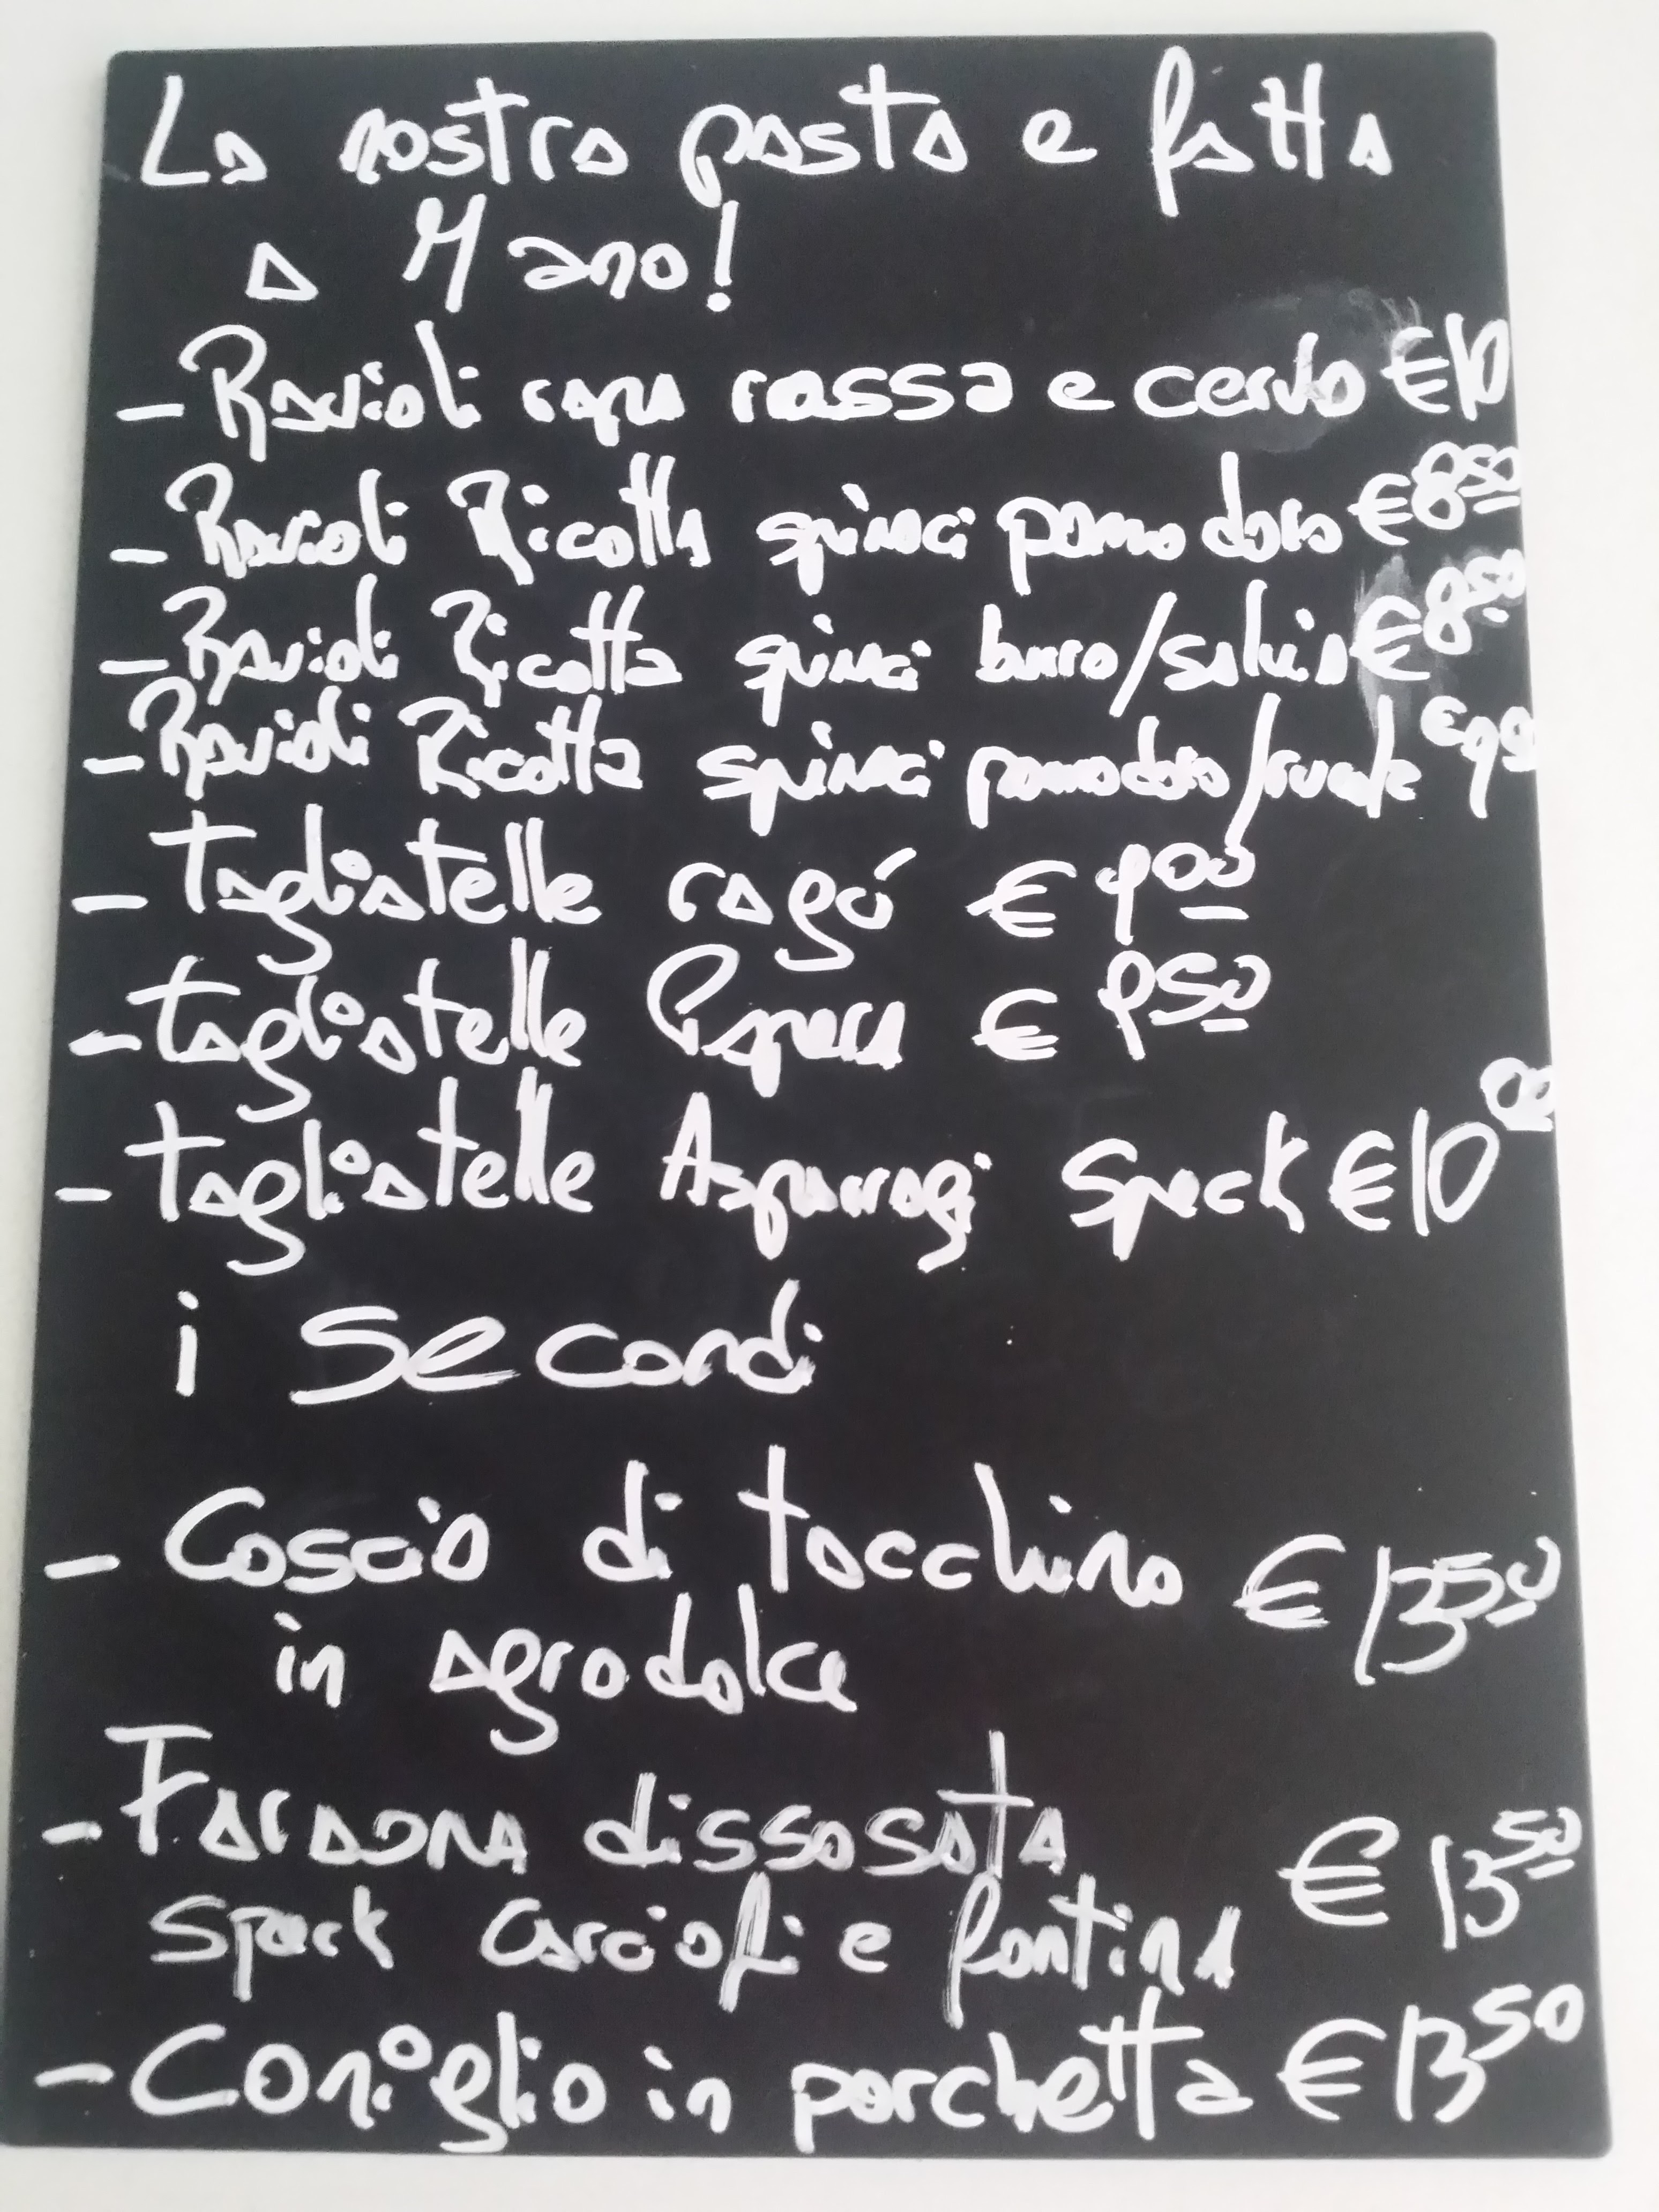 La nostra pasta e fatta
a Mano!
- Ravioli rapa rossa e cervo €10
- Ravioli Ricotta spinaci pomodoro €850
- Ravioli Ricotta spinaci burro/salvia €8.50
- Ravioli Ricotta spinaci pomodoro/ €9
- Tagliatelle ragú € 900
- Tagliatelle Papera € 950
- Tagliatelle Asparragi Speck €10 00
i Secondi
- Coscia di tacchino € 1350
in agrodolce
- Faraona dissosata € 1350
Speck carciofi e fontina
- Coniglio in porchetta € 1350